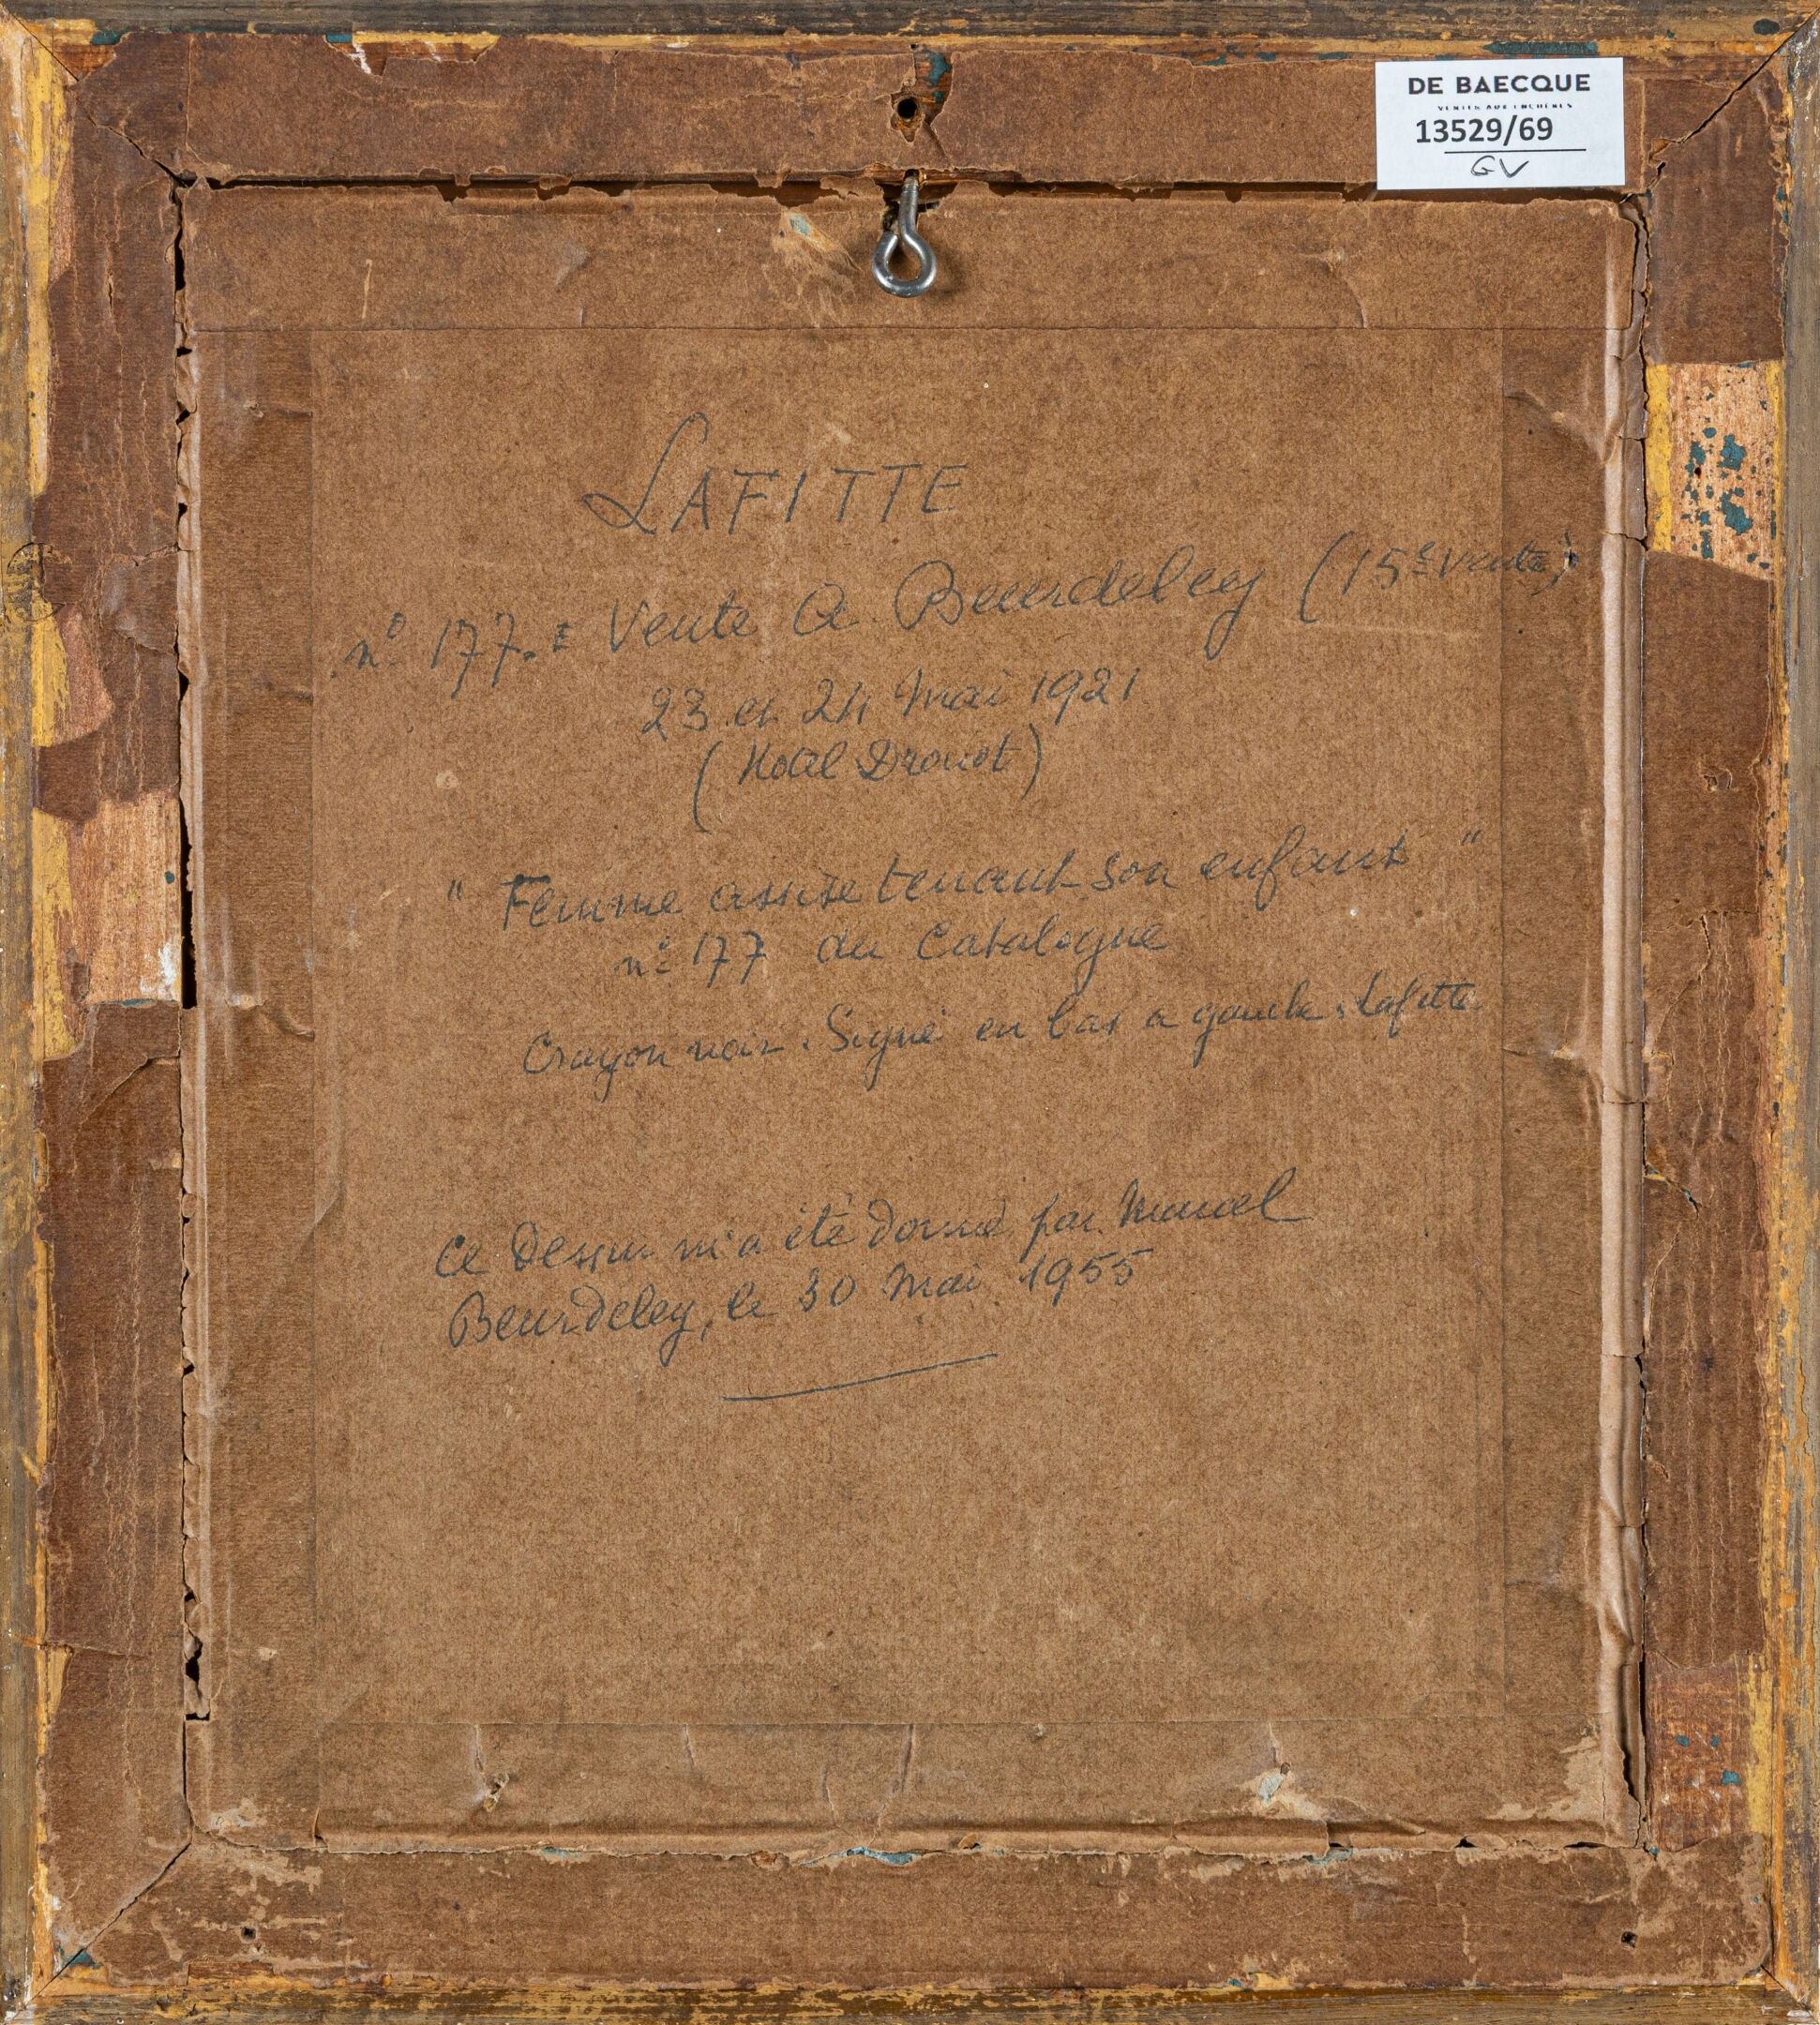 DE BAECQUE
VENTES AUX ENCHÈRES
13529/69
GV
LAFITTE
nº 177. = Vente A. Beurdeley (15e vente)
23 et 24 Mai 1921
(Hotel Drouot)
" Femme assise tenant son enfant "
nº 177 du Catalogue
Crayon noir. Signé en bas a gauche : Lafitte
Ce Dessin m'a été donné par Marcel
Beurdeley, le 30 Mai 1955